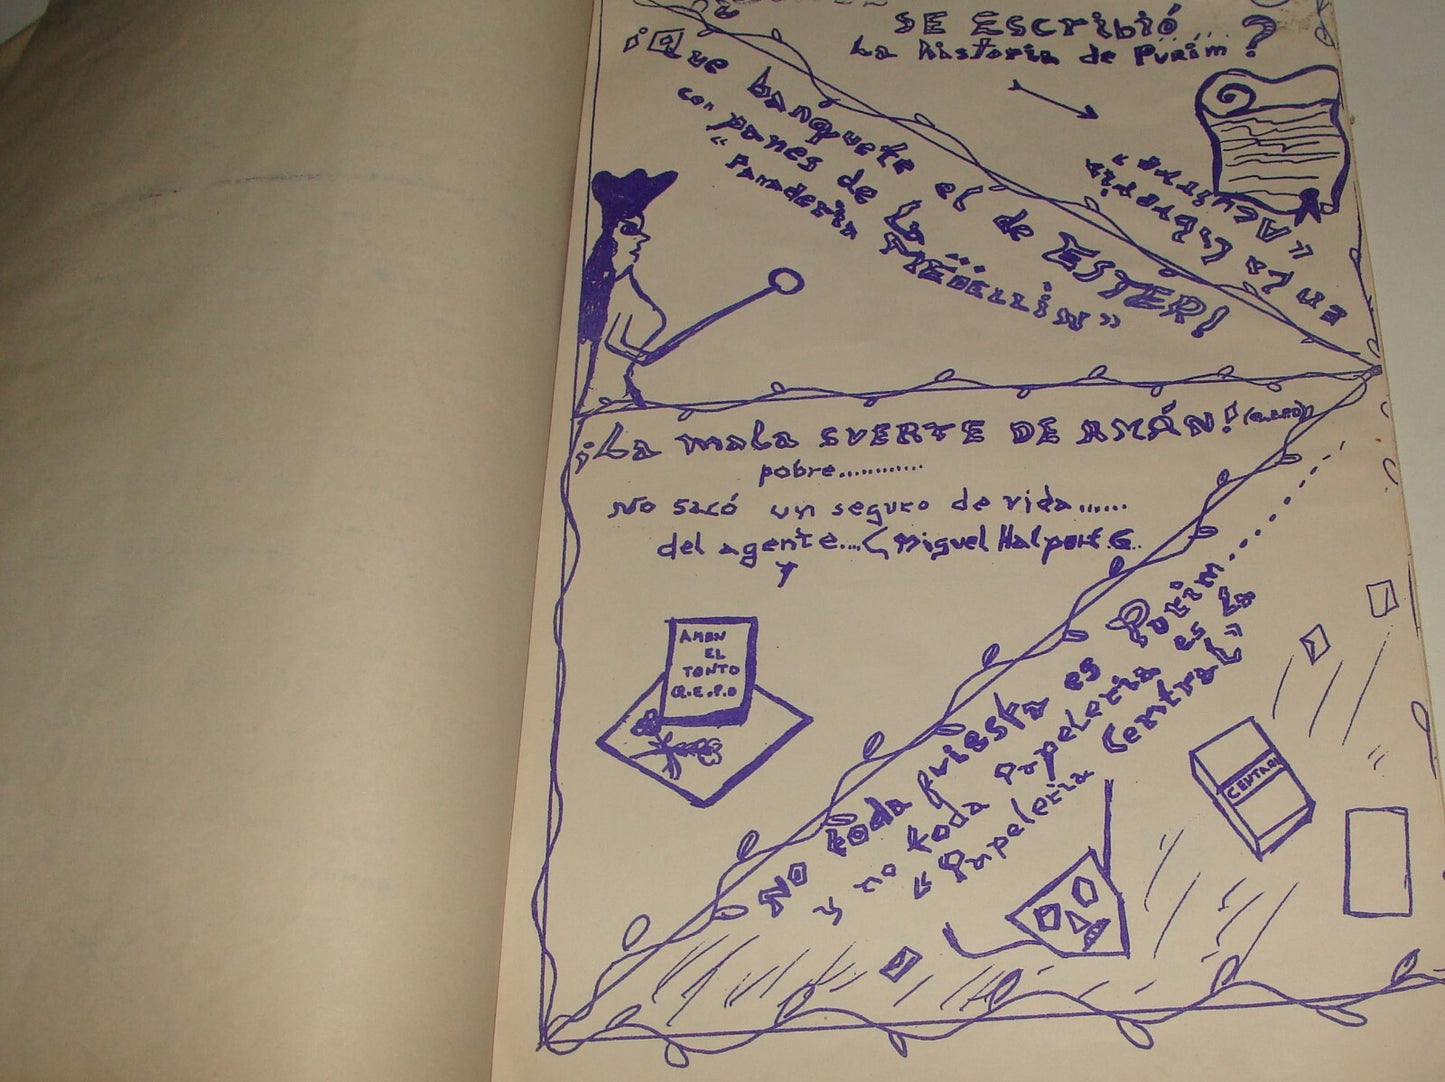 SE EScribió....?
La historia de Purim
EN La Librería
"AcUstre"
¡Que banquete el de ESTER!
con panes de La
"Panaderia MEDELLIN"
¡La mala SUERTE DE AMÁN!
pobre............
No sacó un seguro de vida......
del agente...( Miguel Halpert G.
AMAN
EL
TONTO
Q.E.P.D
No toda fiesta es Purim.........
y no toda Papeleria es La
"Papeleria Central"